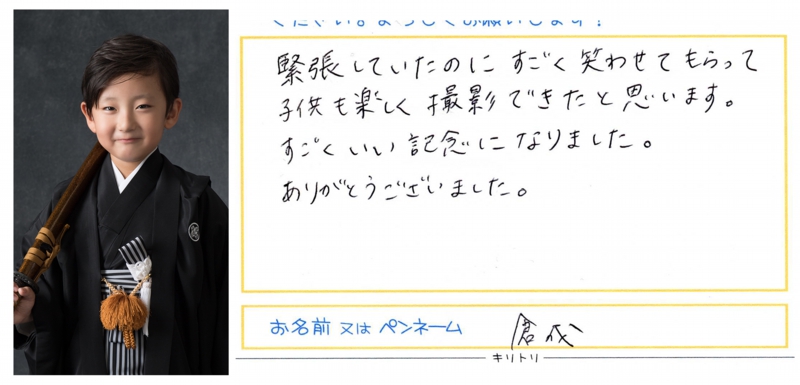 緊張していたのに すごく 笑わせて もらって
子供も楽しく 撮影できたと思います。
すごく いい 記念になりました。
ありがとうございました。
お名前 又は ペンネーム 倉成
キリトリ